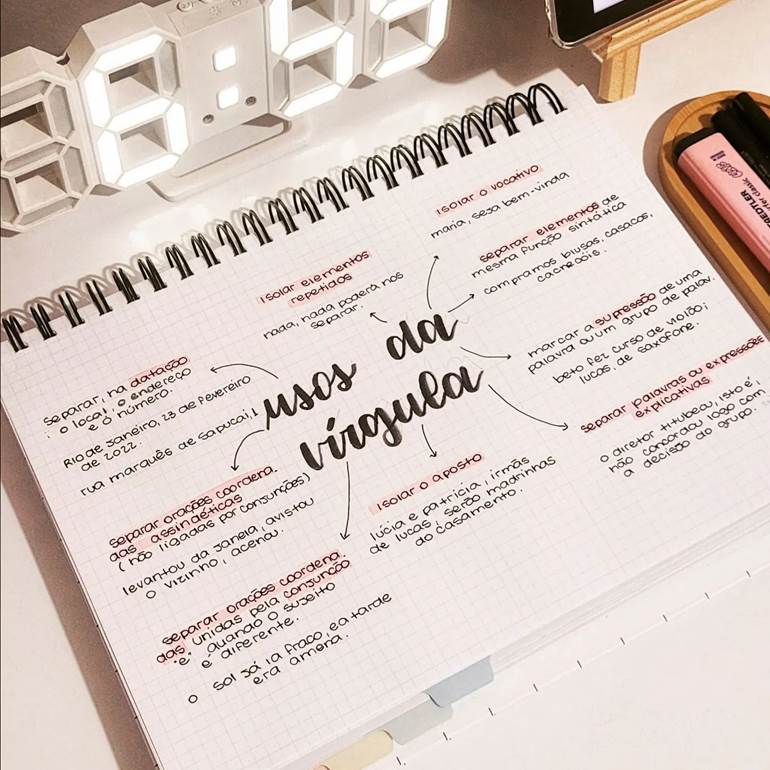 usos da
vírgula
isolar o vocativo
maria, seja bem-vinda
separar elementos de
mesma função sintática
compramos blusas, casacos,
cachecóis.
marcar a supressão de uma
palavra ou um grupo de palav.
beto fez curso de violão;
lucas, de saxofone.
separar palavras ou expressões
explicativas.
o diretor titubeou, isto é,
não concordou logo com
a decisão do grupo.
isolar o aposto
lúcia e patrícia, irmãs
de lucas, serão madrinhas
do casamento.
separar orações coordena.
das unidas pela conjunção
'e' quando o sujeito
é diferente.
o sol já ia fraco, e a tarde
era amena.
separar orações coordena.
das assindéticas
(não ligadas por conjunções)
levantou da janela, avistou
o vizinho, acenou.
separar, na datação
, o local; o endereço
e o número.
Rio de janeiro, 23 de fevereiro
de 2022.
rua marquês de sapucaí, 1
isolar elementos
repetidos
nada, nada poderá nos
separar.
STAEDTLER